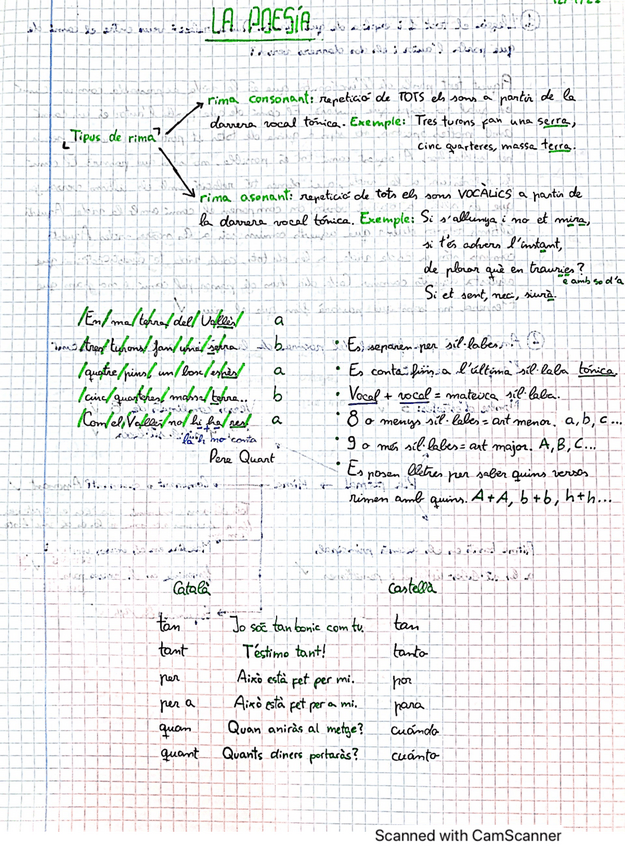 LA POESÍA
Tipus de rima
rima consonant: repetició de TOTS els sons a partir de la
darrera vocal tònica. Exemple: Tres turons fan una serra,
cinc quarteres, massa terra.
rima asonant: repetició de tots els sons VOCÀLICS a partir de
la darrera vocal tònica. Exemple: Si s'allunya i no et mira,
si t'és advers l'instant,
de plorar què en trauries?
e amb so d'a
Si et sent, nec, siurà.
/En/ma/terra/del/Vallès/ a
/tres/turons/fan/una/serra b
/quatre/pins/un/bosc/espès/ a
/cinc/quarteres/massa/terra... b
/Com/el/Vallès/no/hi/ha/res/ a
la h no conta
Pere Quart
• Es separen per síl·labes.
• Es conta fins a l'última síl·laba tònica.
• Vocal + vocal = mateixa síl·laba.
• 8 o menys síl·labes = art menor. a, b, c...
• 9 o més síl·labes = art major. A, B, C...
• Es posen lletres per saber quins versos
rimen amb quins. A+A, b+b, h+h...
Català Castellà
tan Jo soc tan bonic com tu. tan
tant T'éstimo tant! tanto
per Això està fet per mi. por
per a Això està fet per a mi. para
quan Quan aniràs al metge? cuándo
quant Quants diners portaràs? cuánto
Scanned with CamScanner